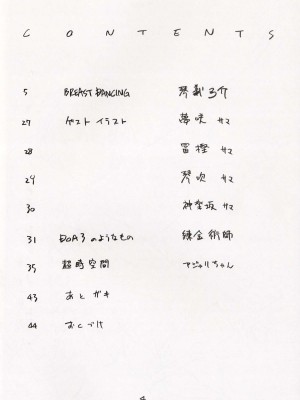 CONTENTS
5 BREAST DANCING 琴義弓介
27 ゲスト イラスト 夢咲 サマ
28 冨樫 サマ
29 琴吹 サマ
30 神楽坂 サマ
31 DOA3 のようなもの 錬金術師
35 超時空間 マジャリちゃん
43 あと ガキ
44 おくづけ
4